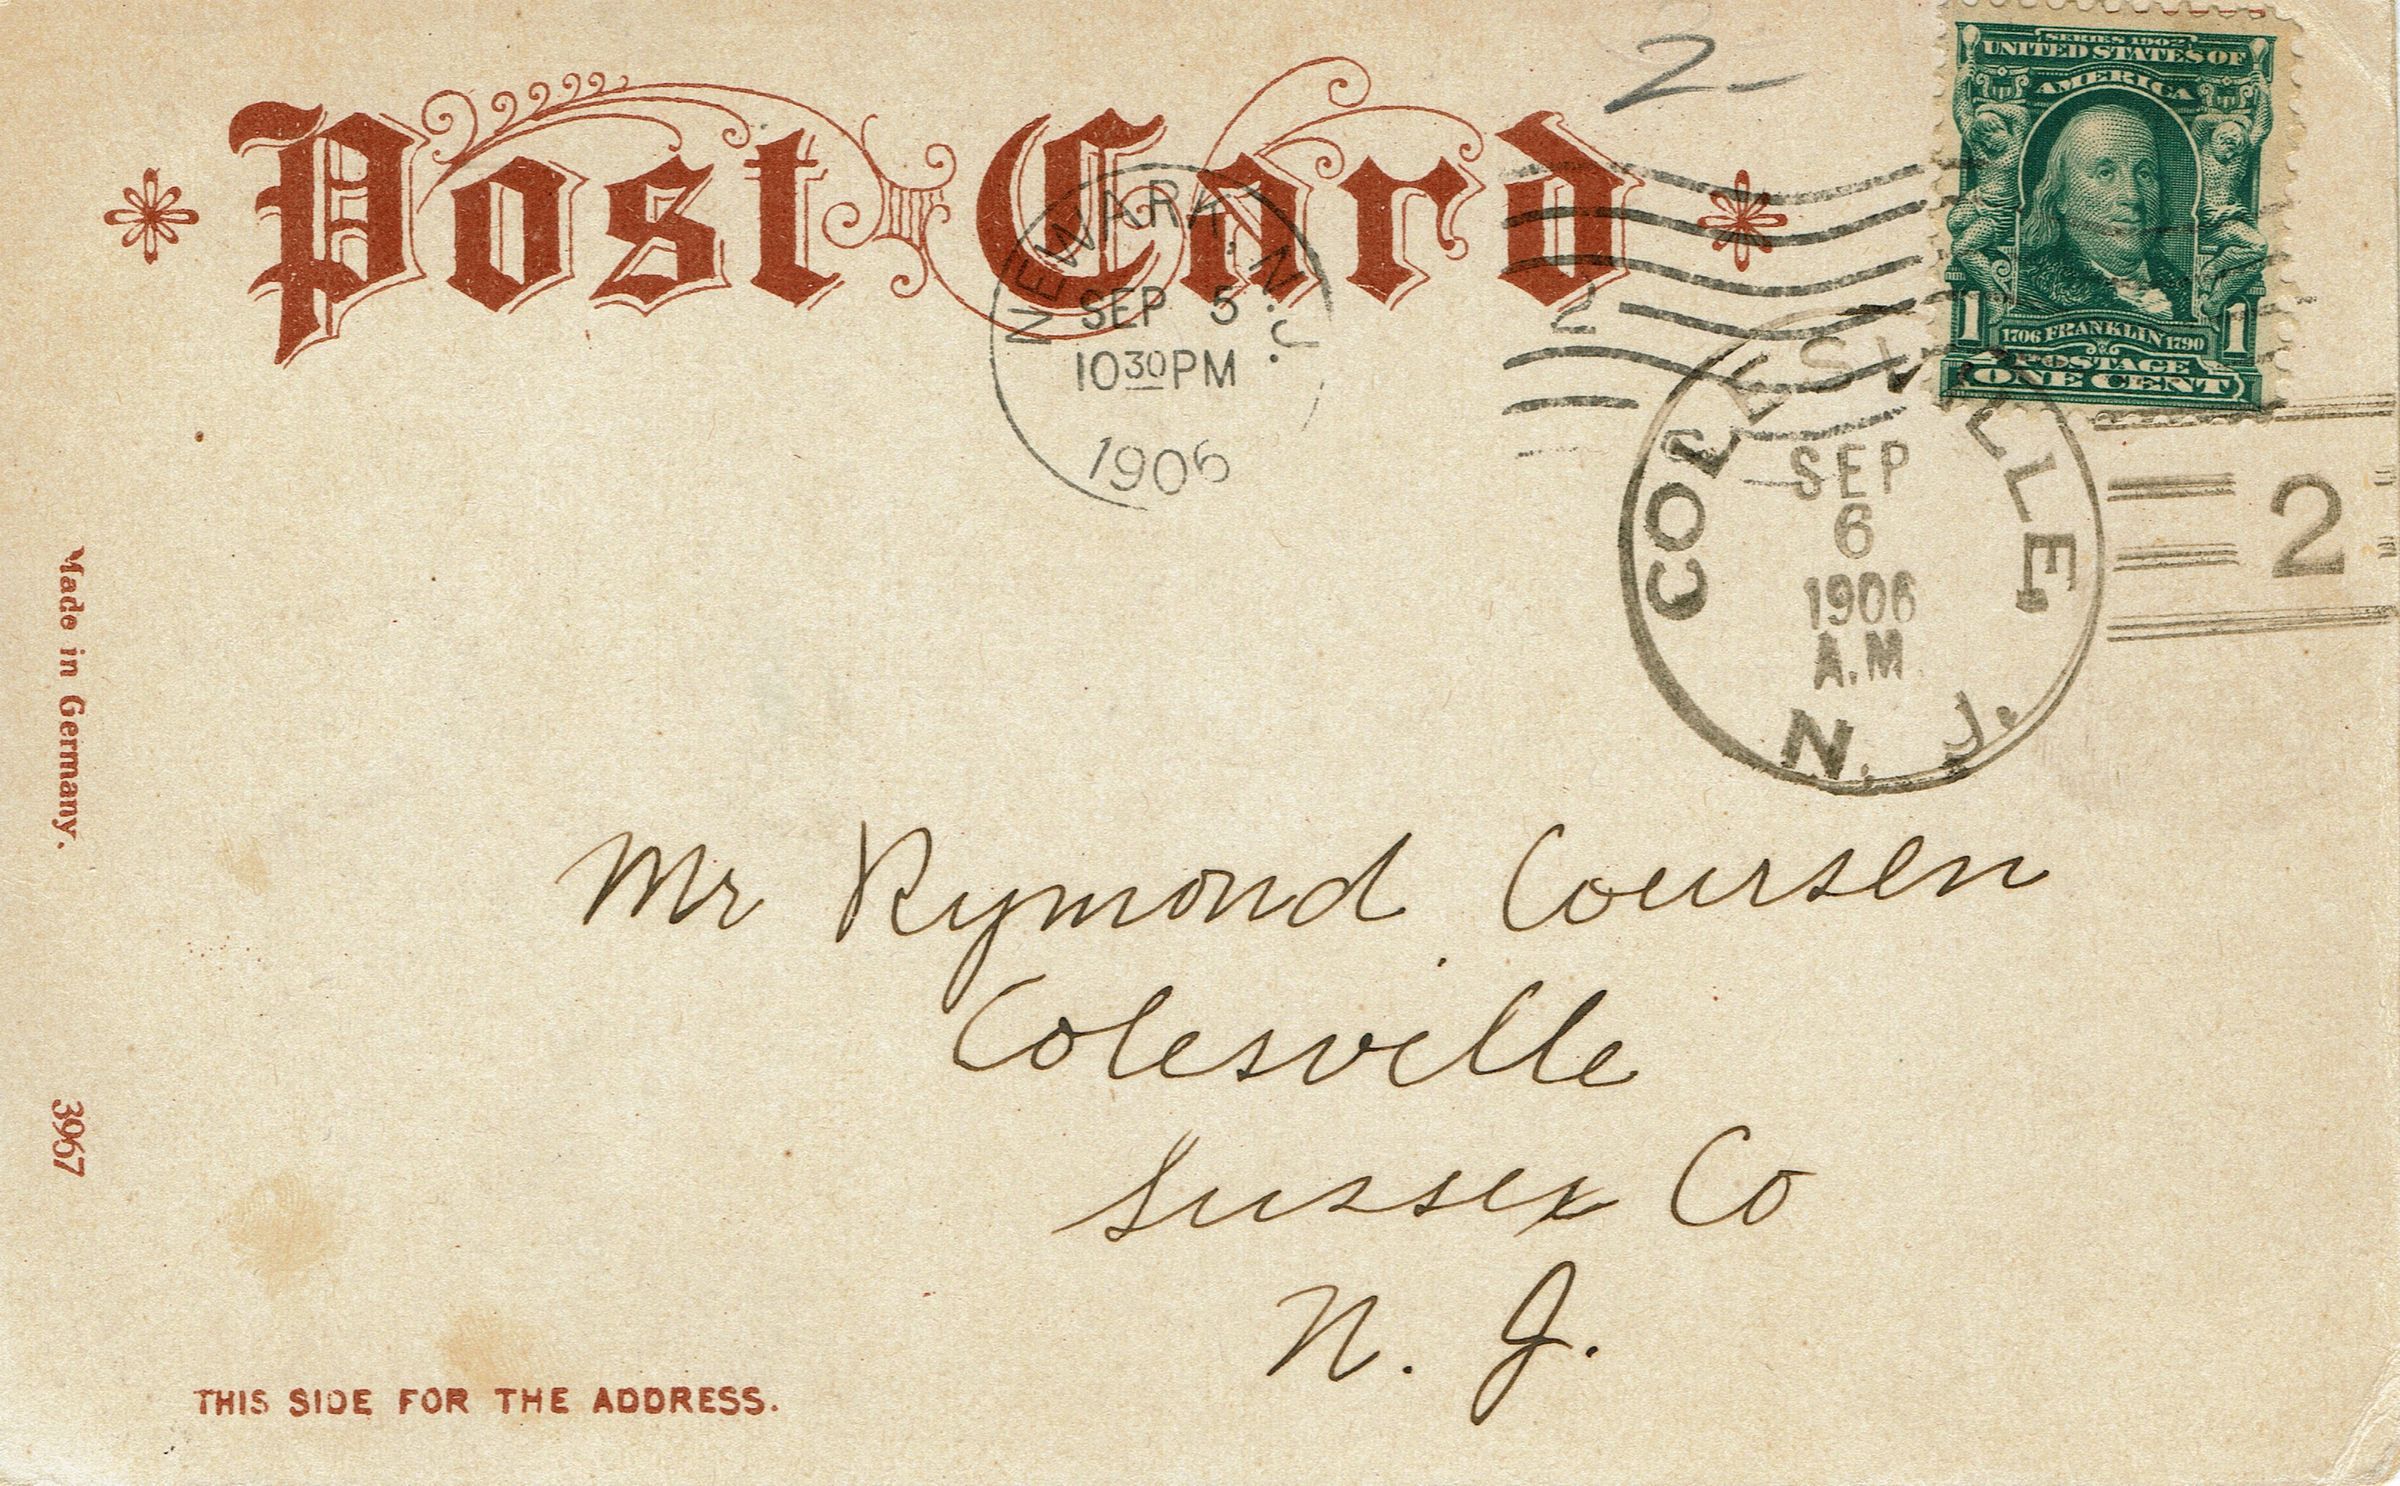 Post Card
2-
SERIES 1902
UNITED STATES OF
AMERICA
1706 FRANKLIN 1790
1 1
POSTAGE
ONE CENT
NEWARK, N.J.
SEP 5
10 30 PM
1906
2
COLESVILLE
SEP
6
1906
A.M.
N. J.
2
Mr Rymond Coursen
Colesville
Sussex Co
N. J.
Made in Germany.
3967
THIS SIDE FOR THE ADDRESS.